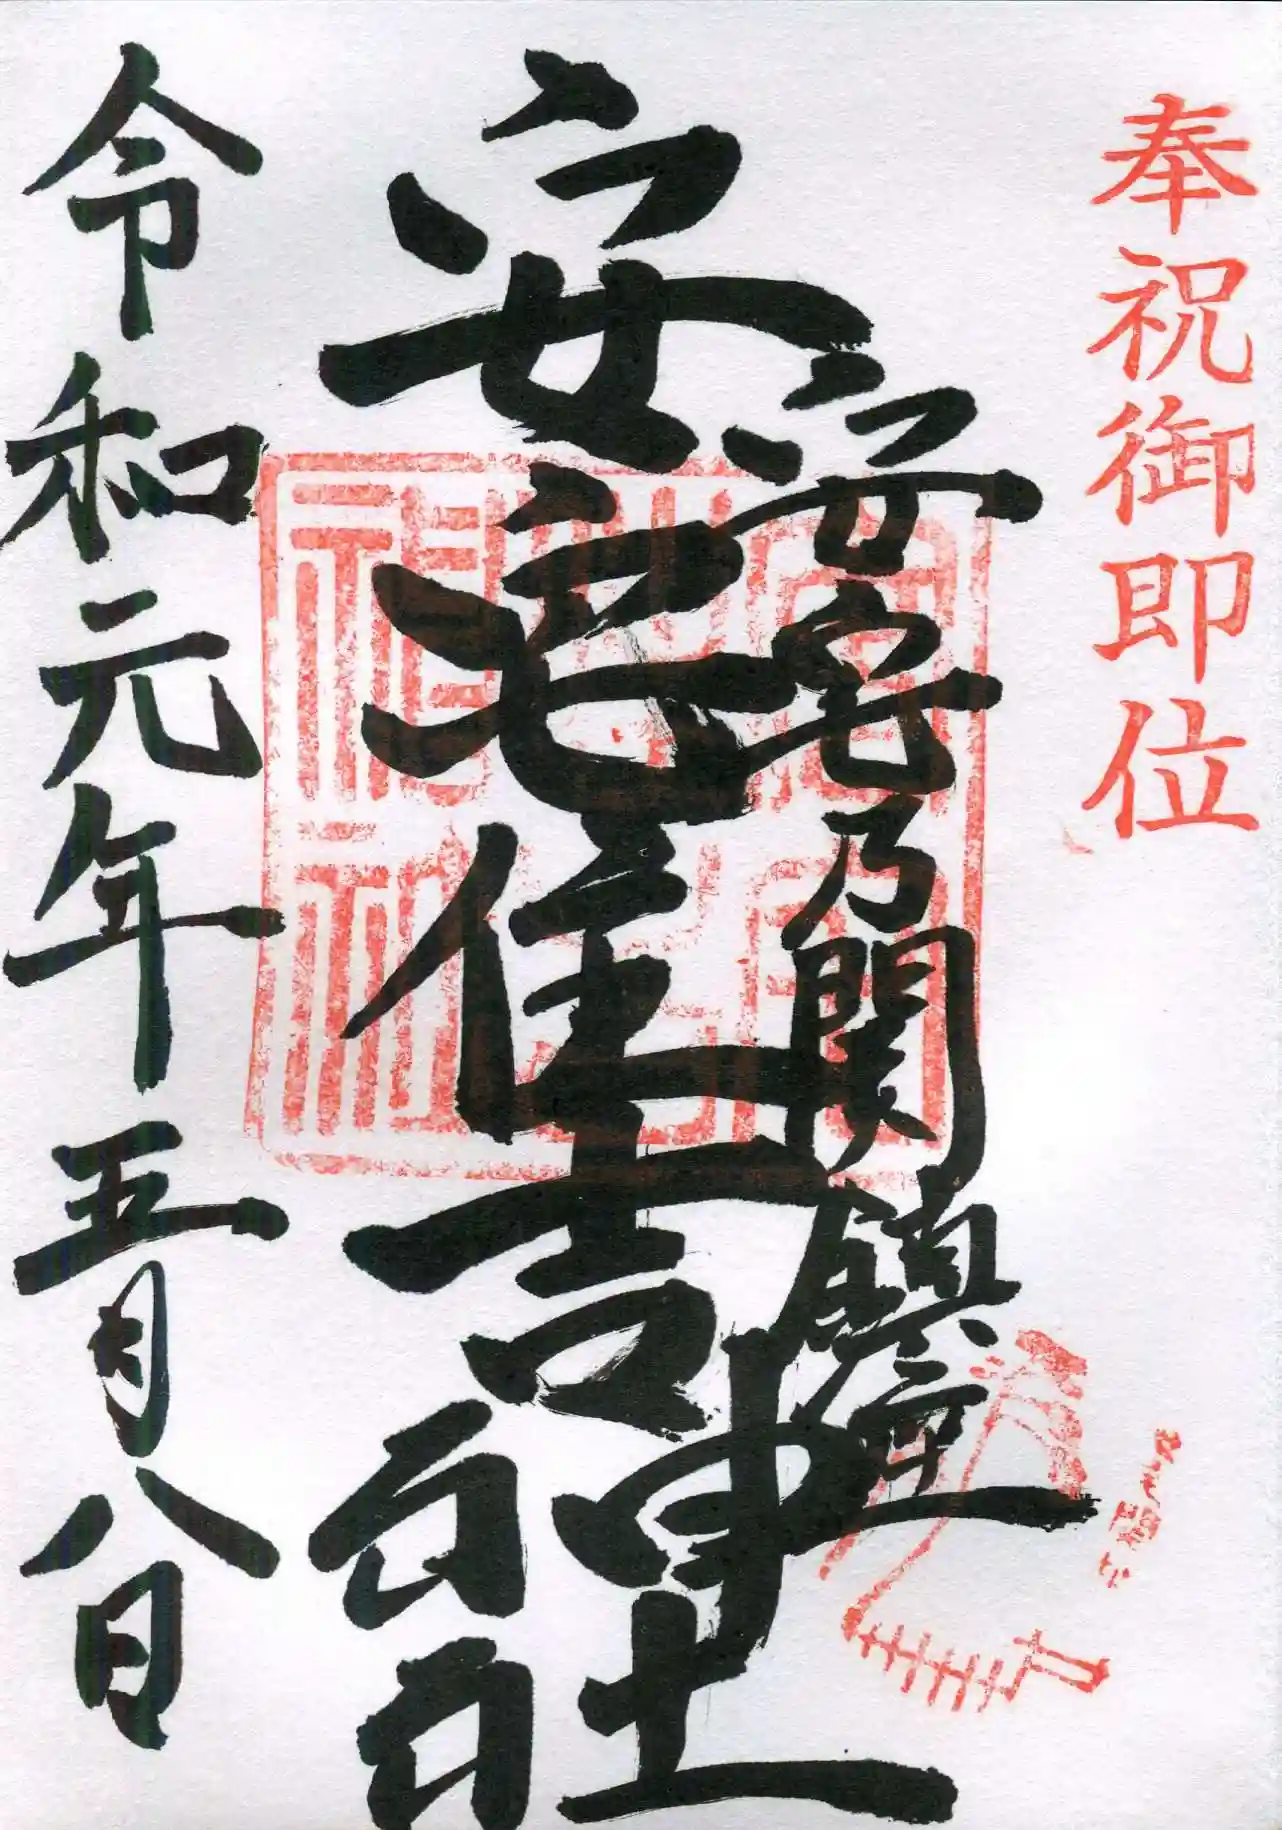 奉祝御即位
安宅乃關鎮座
安宅住吉神社
令和元年五月八日